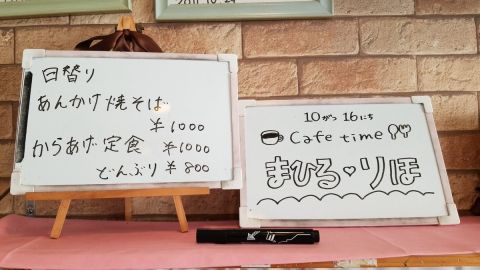 日替り
あんかけ焼そば
¥1000
からあげ定食 ¥1000
どんぶり ¥800
10がつ 16にち
Cafe time
まひる♡りほ